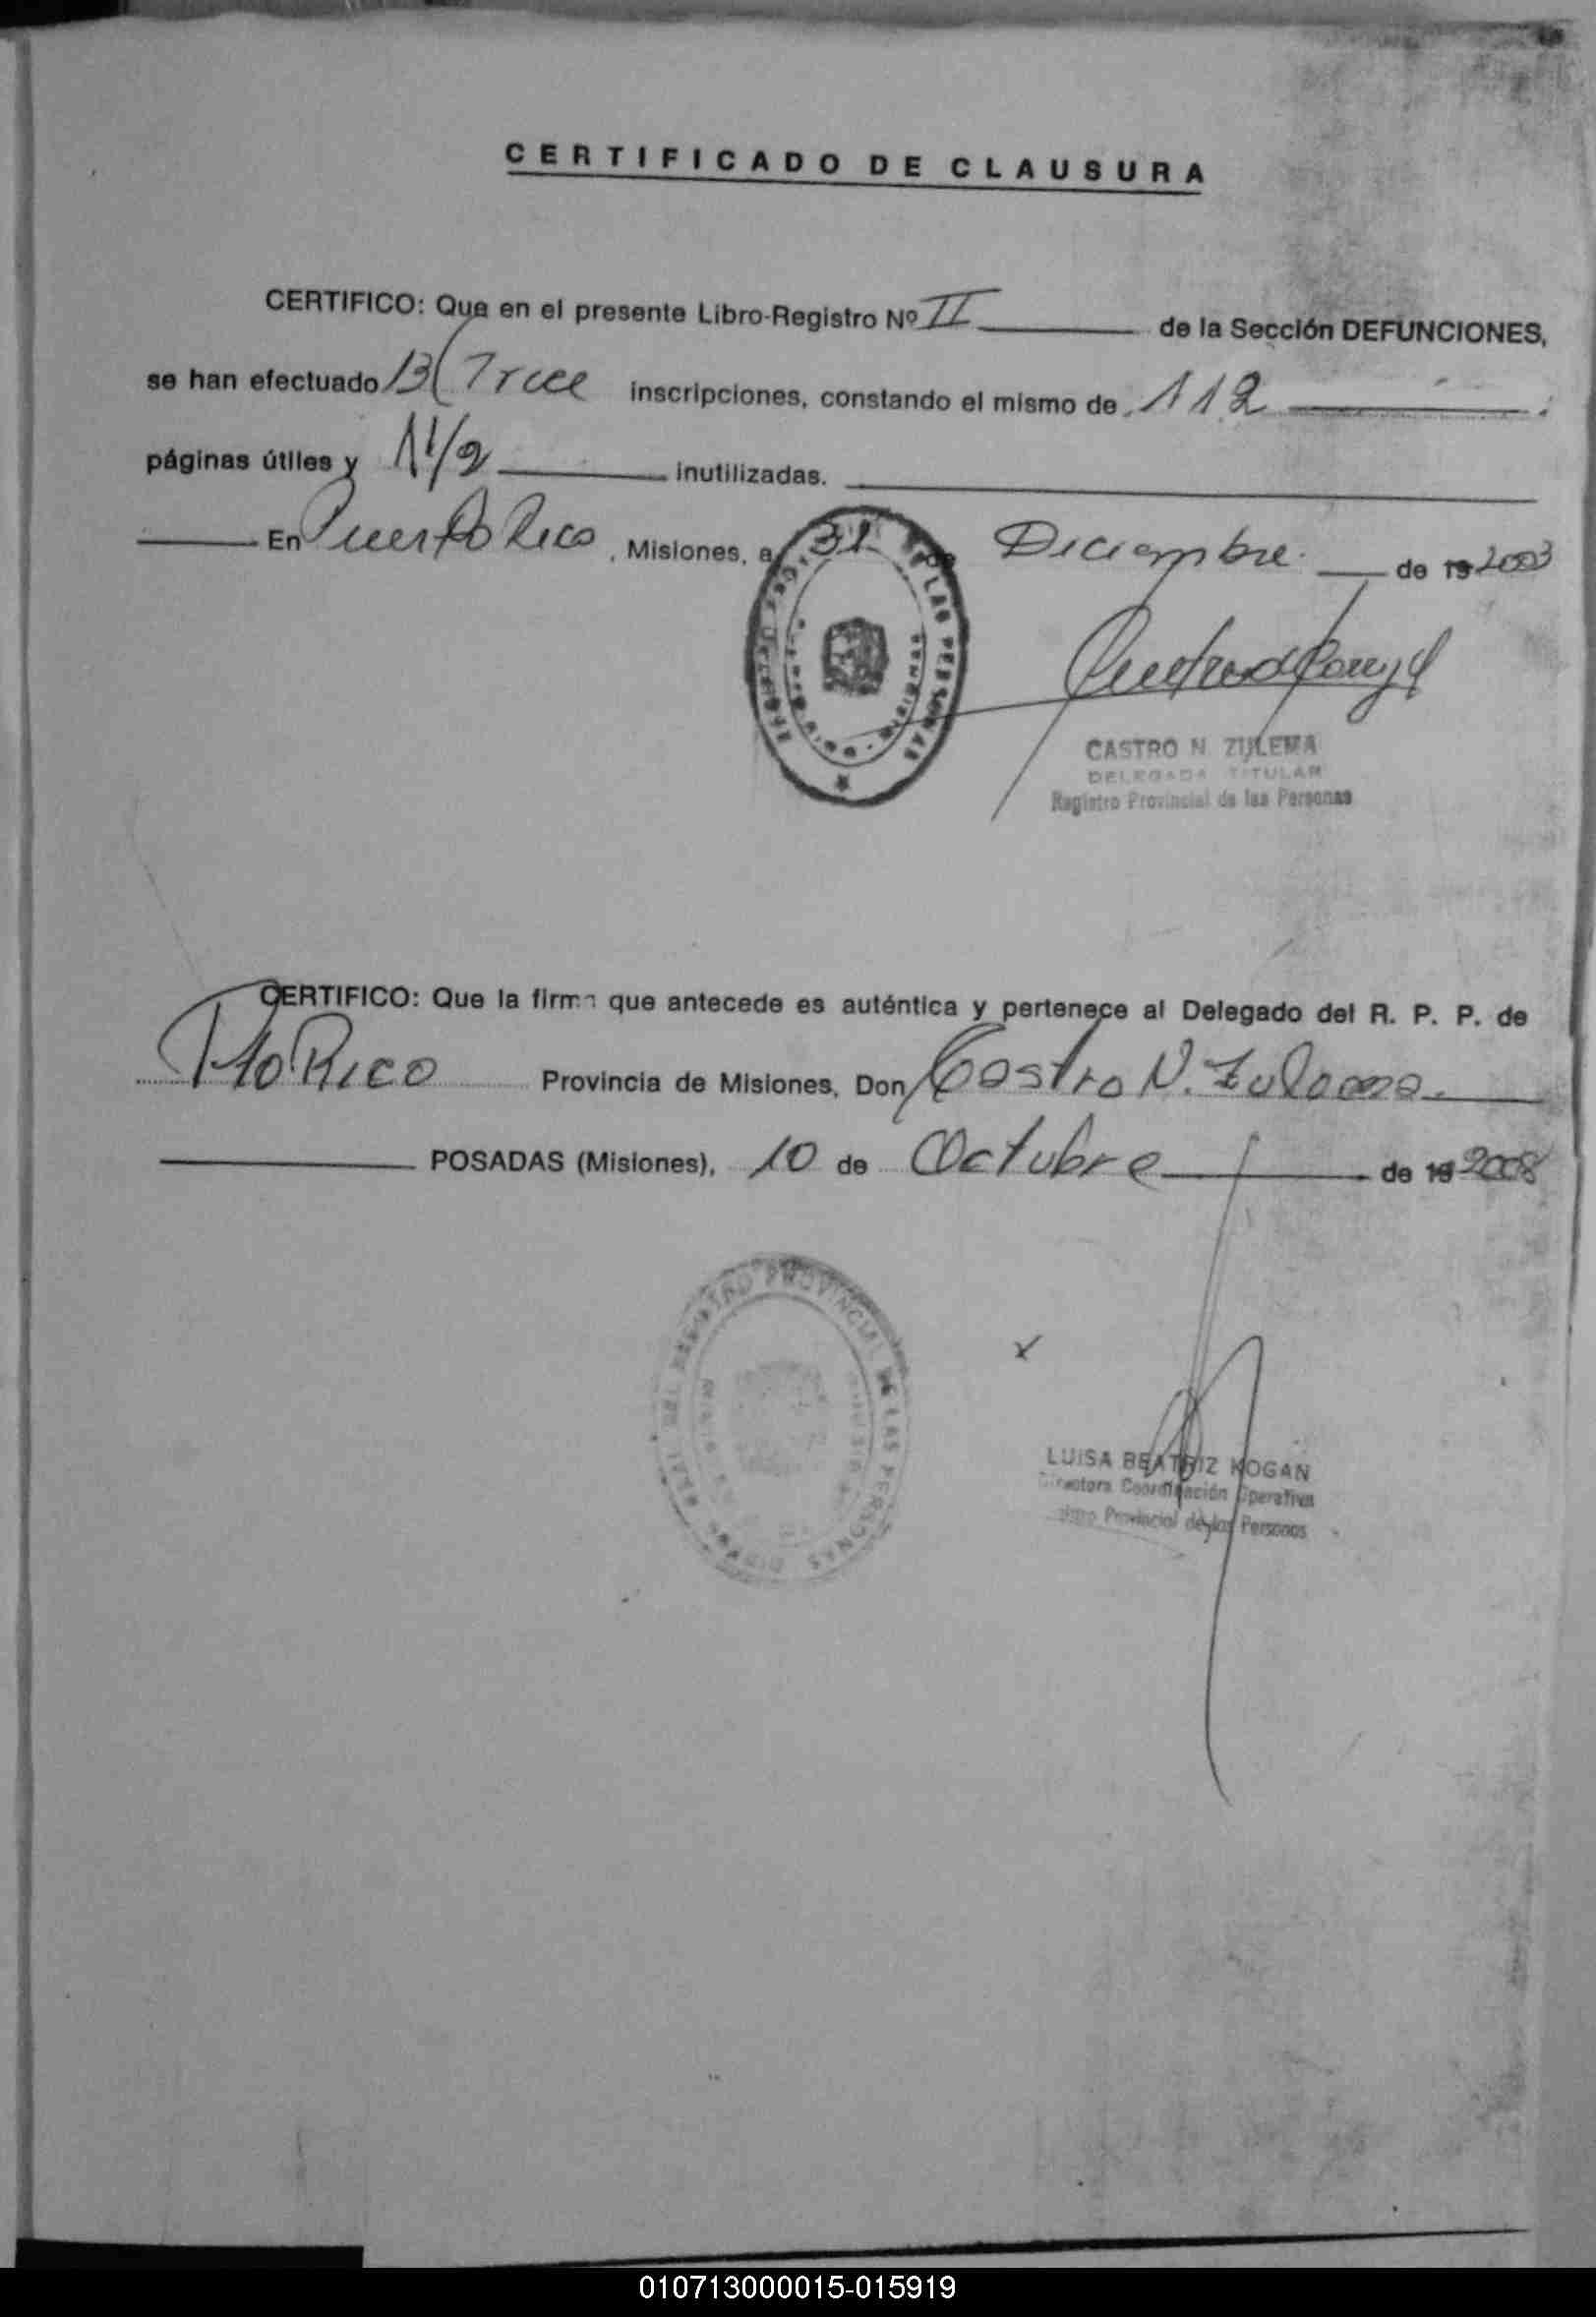 CERTIFICADO DE CLAUSURA
CERTIFICO: Que en el presente Libro-Registro Nº II de la Sección DEFUNCIONES,
se han efectuado 13 (Trece inscripciones, constando el mismo de 112
páginas útiles y inutilizadas.
En Puerto Rico, Misiones, a 31 de Diciembre de 19 2003
DE LAS PERSONAS
CASTRO N ZULEMA
DELEGADA TITULAR
Registro Provincial de las Personas
CERTIFICO: Que la firma que antecede es auténtica y pertenece al Delegado del R. P. P. de
Pto Rico Provincia de Misiones, Don Castro N. Zulema.
POSADAS (Misiones), 10 de Octubre de 19 2008
DEL REGISTRO PROVINCIAL DE LAS PERSONAS
LUISA BEATRIZ KOGAN
Directora Coordinación Operativa
Provincial de las Personas
010713000015-015919